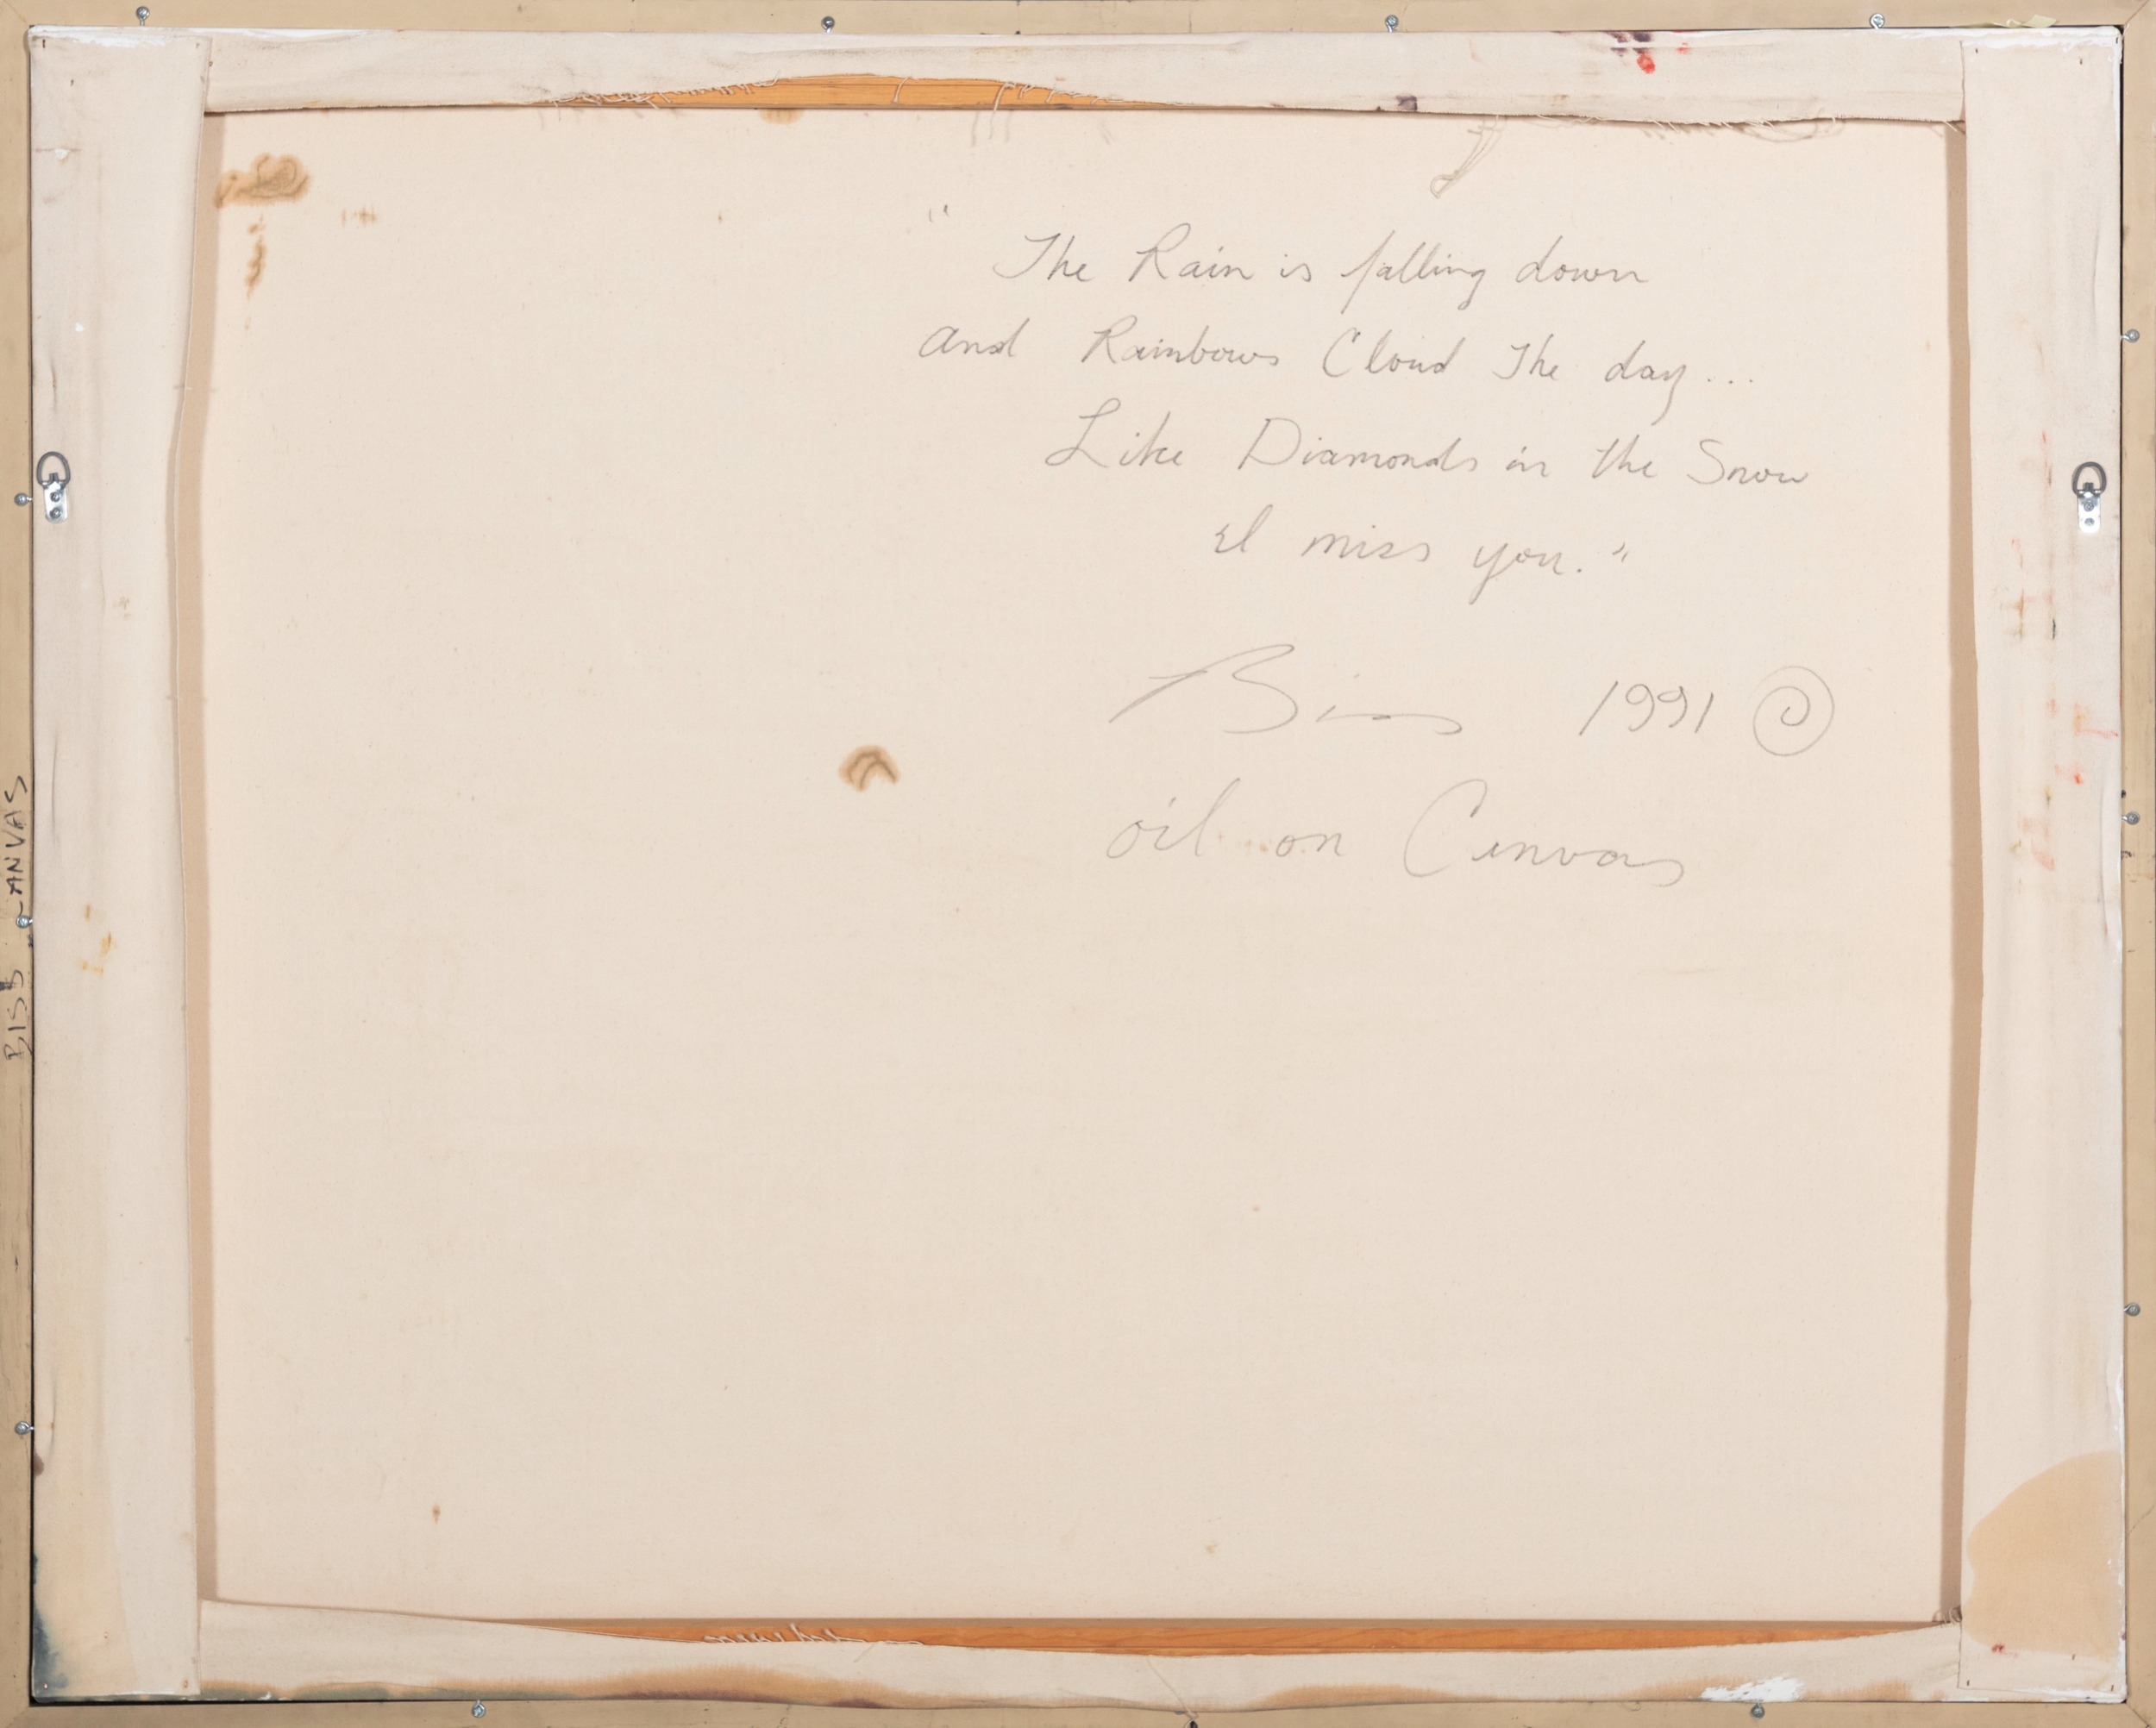 "The Rain is falling down
and Rainbows Cloud The day...
Like Diamonds in the Snow
I miss you."
Biss 1991
oil on Canvas
BISS CANVAS